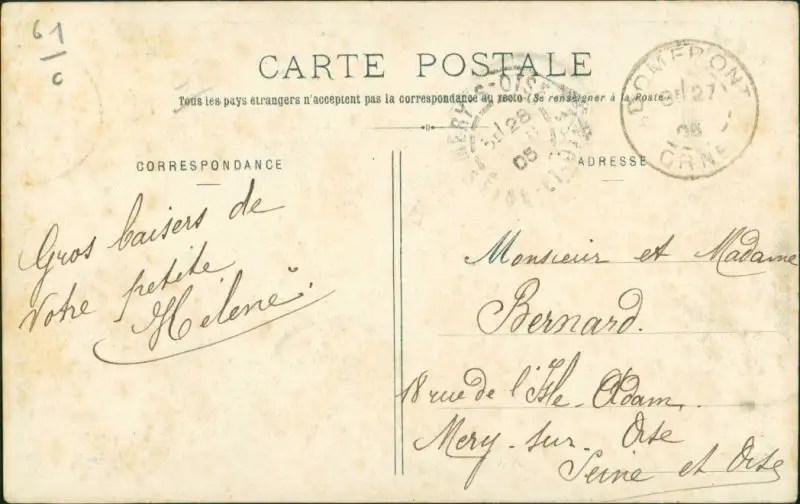 61
c
CARTE POSTALE
Tous les pays étrangers n'acceptent pas la correspondance au recto (Se renseigner à la Poste)
MERY-S-OISE
28
05
SEINE-ET-OISE
DOMFRONT
27
05
ORNE
CORRESPONDANCE
Gros baisers de
votre petite
Hélène.
ADRESSE
Monsieur et Madame
Bernard.
18 rue de l'Isle-Adam.
Mery-sur-Oise
Seine et Oise